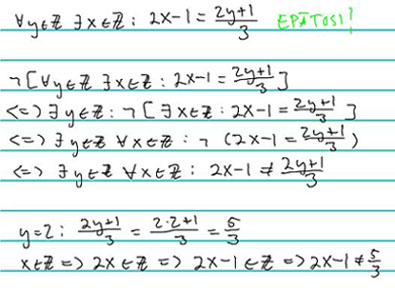 ∀y∈ℤ ∃x∈ℤ : 2x-1 = (2y+1)/3 EPÄTOSI!
¬[∀y∈ℤ ∃x∈ℤ : 2x-1 = (2y+1)/3]
<=> ∃y∈ℤ : ¬[∃x∈ℤ : 2x-1 = (2y+1)/3]
<=> ∃y∈ℤ ∀x∈ℤ : ¬(2x-1 = (2y+1)/3)
<=> ∃y∈ℤ ∀x∈ℤ : 2x-1 ≠ (2y+1)/3
y=2 : (2y+1)/3 = (2·2+1)/3 = 5/3
x∈ℤ => 2x∈ℤ => 2x-1∈ℤ => 2x-1 ≠ 5/3